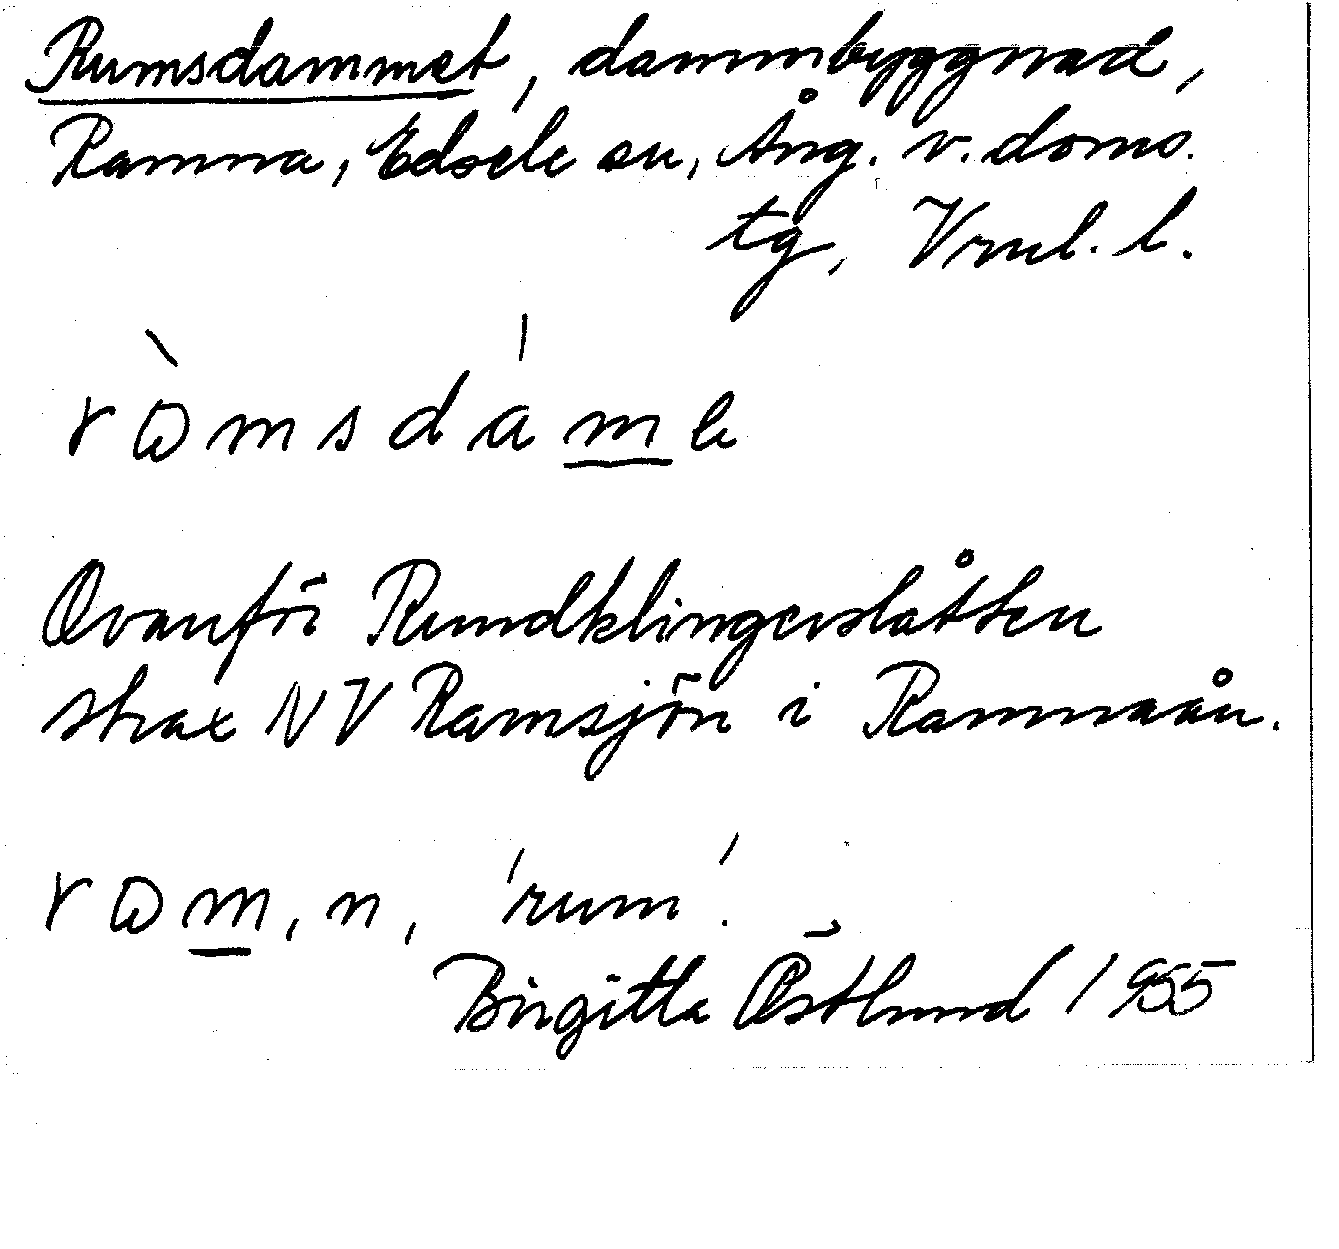 Rumsdammet, dammbyggnad,
Ramna, Edsele sn, Ång. v. doms.
tg, Vrml. l.
ròmsdáme
Ovanför Rundklingerslåtten
strax NV Ramsjön i Ramnaån.
rom, n, 'rum'.
Birgitta Östlund 1955